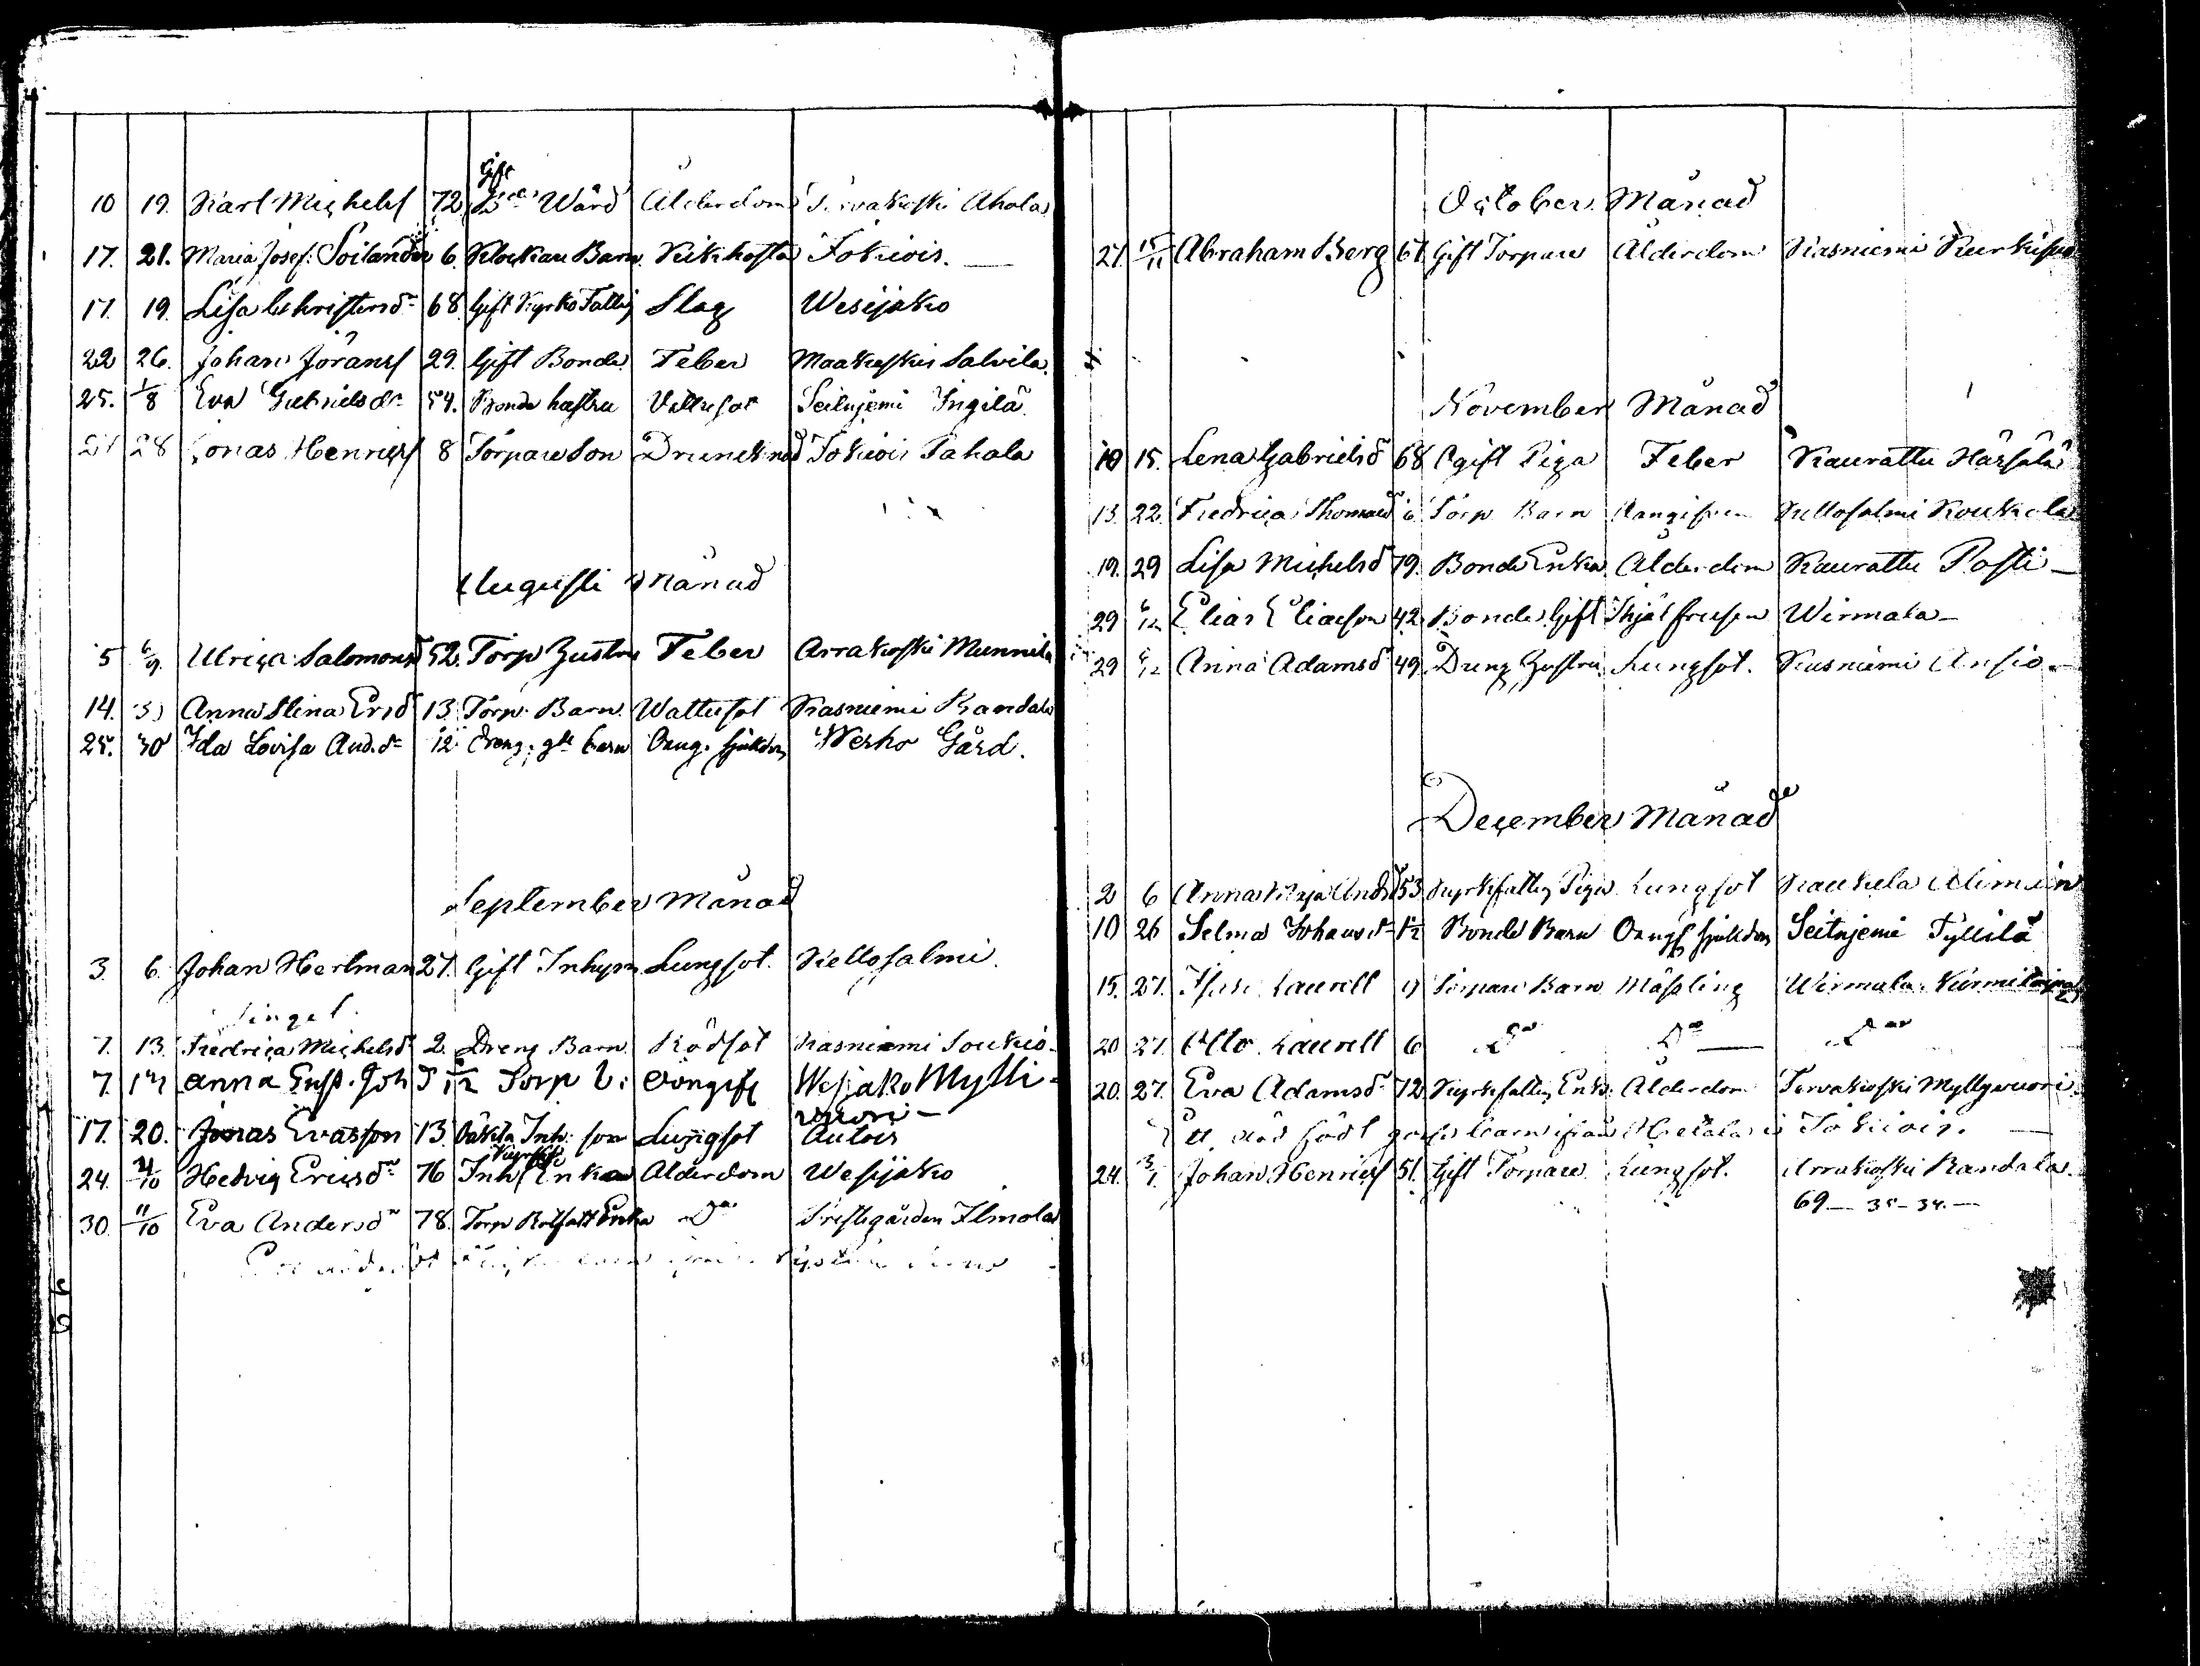 Gift
10 19. Karl Michelss 72 Wård Ålderdom Tervakoski Ahola
17. 21. Maria Josef: Soilander 6. Klockare Barn. Kikhosta Jokiois.
17. 19. Lisa Christersdr 68. Gift Kyrko Fattig Slag Wesijako
22 26. Johan Göranss 29. Gift Bonde Feber Maakeski Salvila.
25. 1/8 Eva Gabrielsdr 54. Bonde hustru Vattusot Seitnjemi Ingilä
28 Jonas Henrics 8 Torpare Son Drunknad Jokiois Pahala
Augusti Månad
5 6/9. Ulrica Salomonsd 52. Torp Hustru Feber Arrakoski Munnila
14. Anna Stina Ersd 13 Torp. Barn. Wattusot Kasniemi Randala
25. 30 Ida Lovisa And.dr 12 Dreng: Barn Oang. sjukdom Wesho Gård.
September Månad
3. 6. Johan Herlman 27. Gift Inhysn Lungsot. Kellosalmi.
7. 13. Fredrica Michelsdr 2. Dreng Barn. Rödsot Kasniemi Soukio
7. Anna Joh Torp Oangif Wesijako Mylli-
vuori-
17. 20. Jonas Evasson 13. Oäkta Inh: son Lungsot Aulois
24. 4/10 Hedvig Ericsdr 76 Inh Enka Ålderdom Wesijako
30. 11/10 Eva Andersdr 78. Torp Enka Do Prestegården Ilmola
October Månad
27. 15/11 Abraham Berg 67 Gift Torpare Ålderdom Kasniemi
November Månad
10 15. Lena Gabrielsd 68 Ogift Piga Feber Kaurattu Härsälä
13. 22. Fredrica Thomasd 6 Torp Barn Oangifven Kellosalmi Koukola
19. 29 Lisa Michelsd 79. Bonde Enka Ålderdom Kaurattu Posti
29 6/12 Elias Eliasson 42. Bonde Gift Ihjälfrusen Wirmala
29 6/12 Anna Adamsdr 49. Dreng Hustru Lungsot. Kasniemi Ansio
December Månad
2 6 Anna Maja Andsd 53. Kyrkfattig Piga Lungsot Kaukela Alimäin
10 26 Selma Johansdr 1/2 Bonde Barn Oangif sjukdom Seitnjemi Tyllilä
15. 27. Laurell Torpare Barn Mässling Wirmala
20 27. Otto Laurell 6 Do Do Do
20. 27. Eva Adamsdr 72 Kyrkfattig Enk: Ålderdom Tervakoski Myllyvuori.
Ett död födt barn ifrån Hietala i Jokiois.
24. 3/1. Johan Henrics 51. Gift Torpare Lungsot. Arrakoski Randala
69 — 35 – 34. —